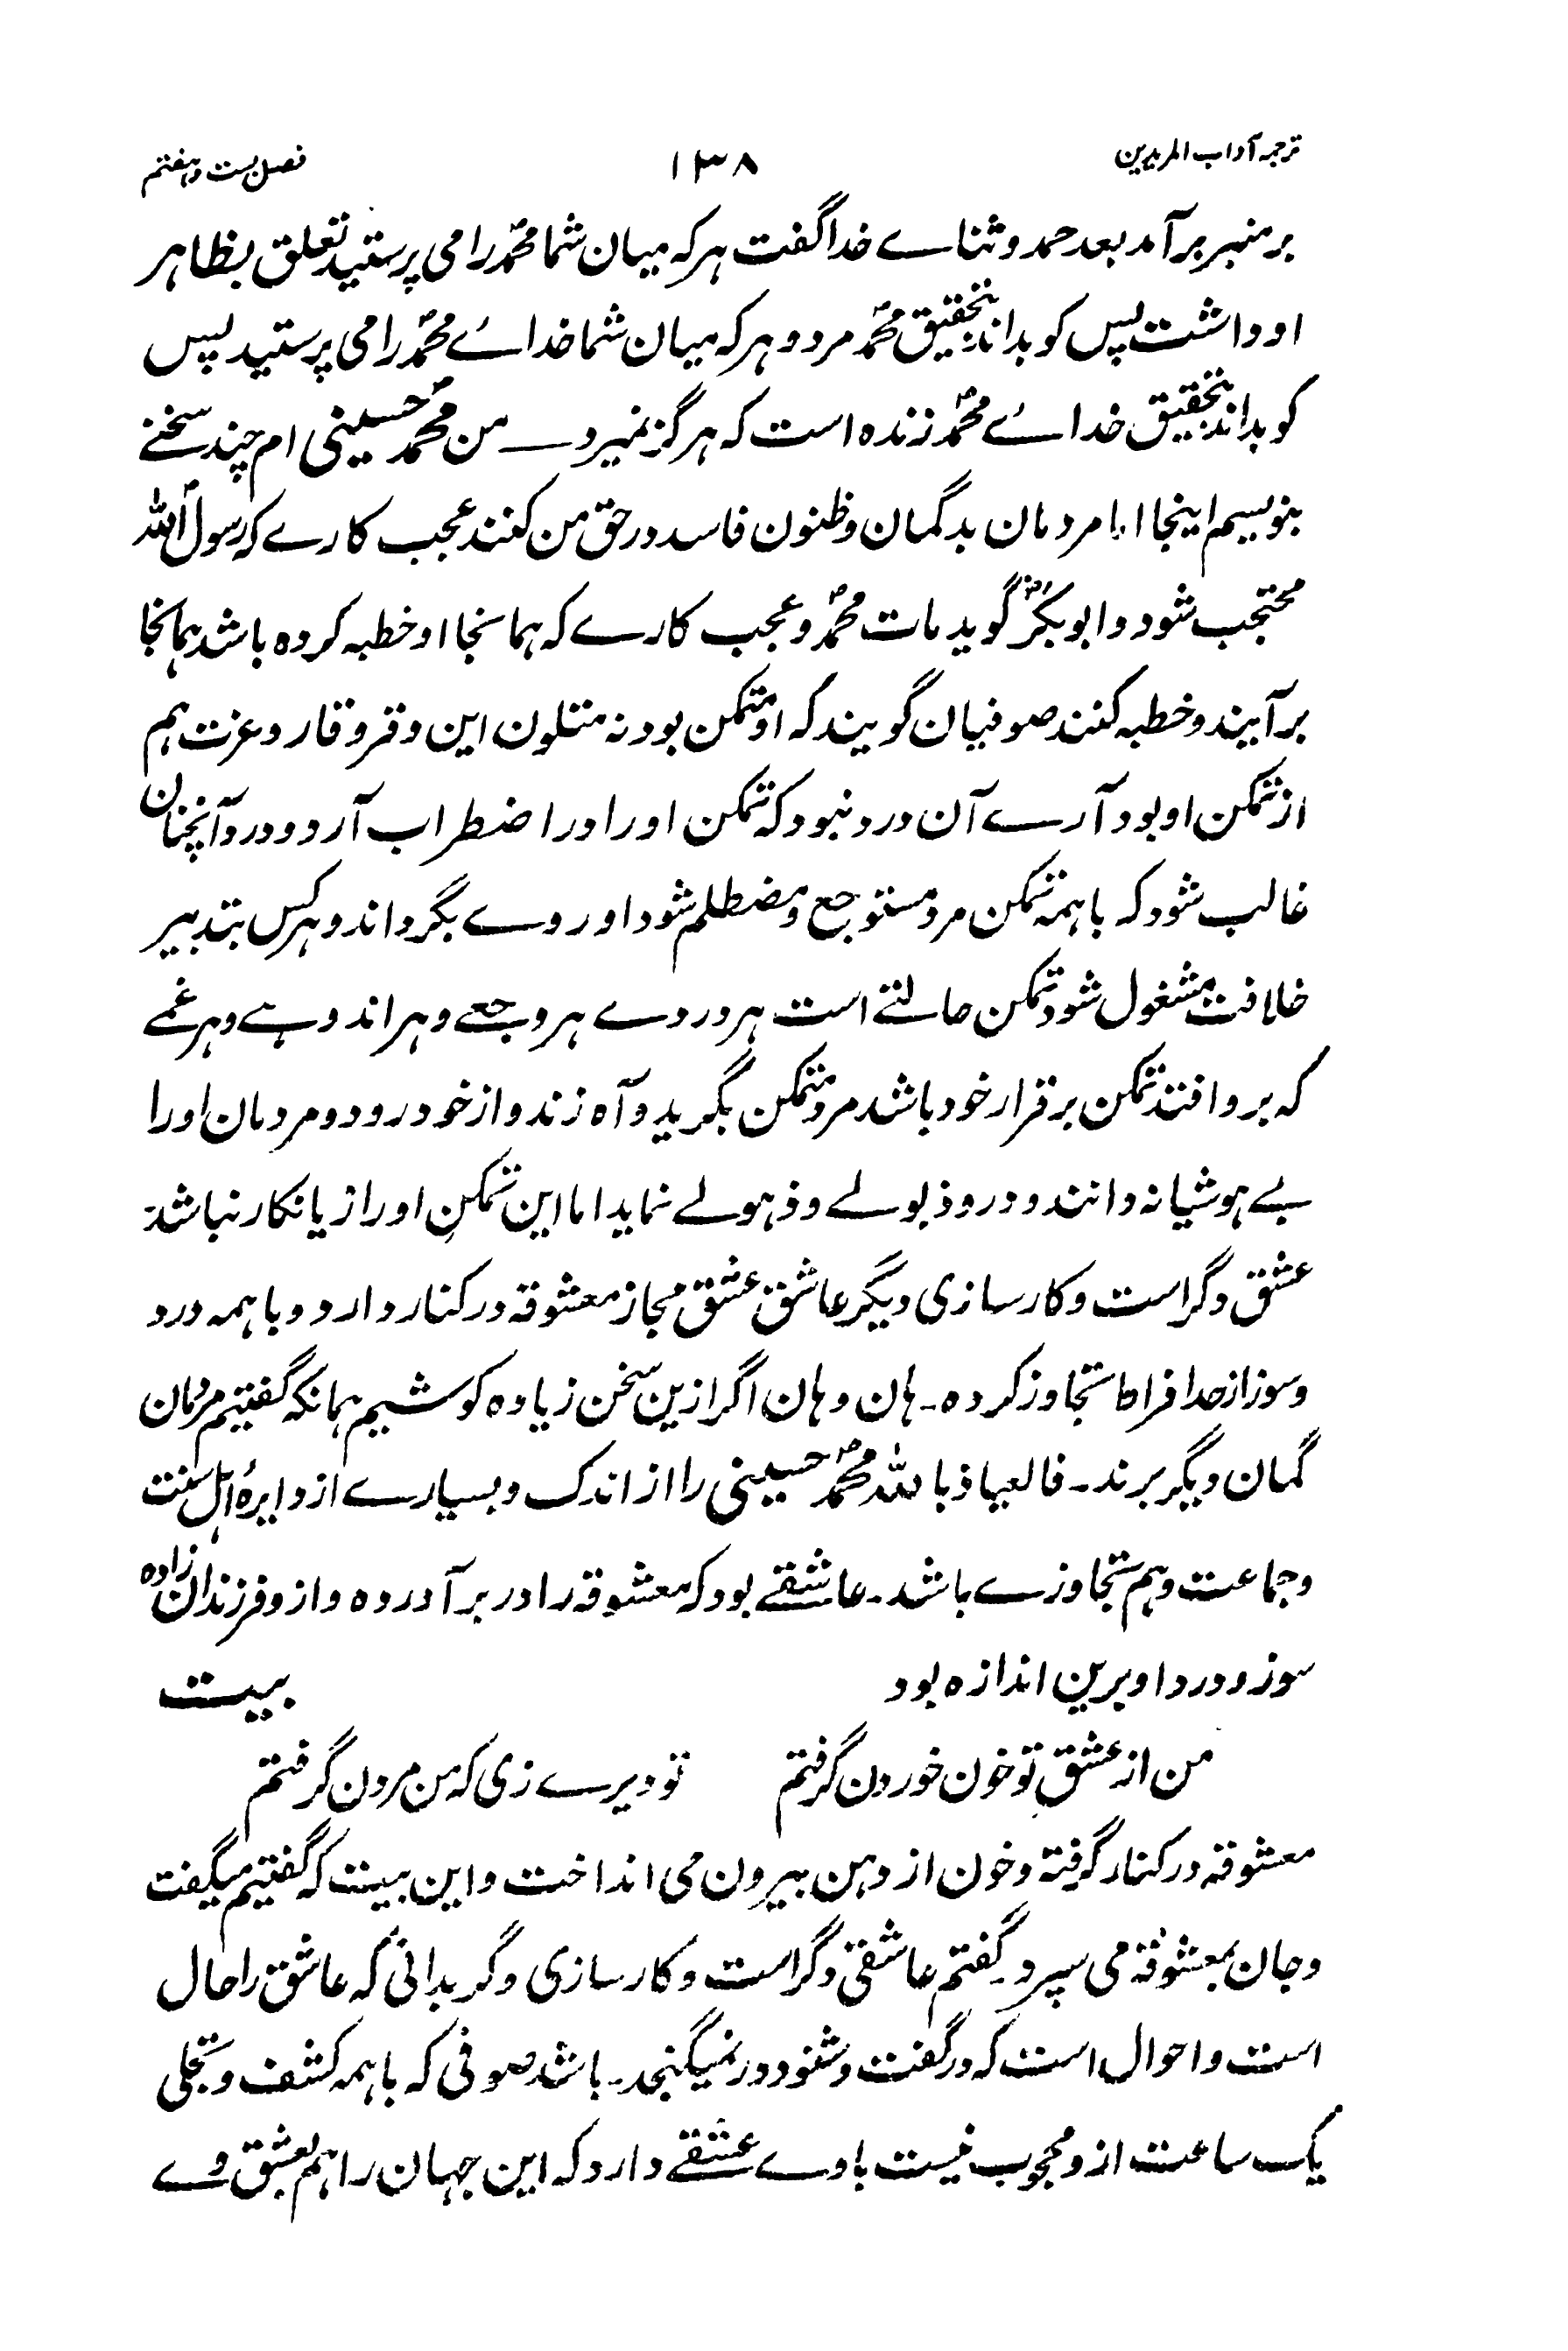 ترجمہ آداب المریدین ۱۳۸ فصل بست و ہفتم
بر منبر بر آمد بعد حمد و ثناے خدا گفت ہر کہ میان شما محمدؐ را می پرستید تعلق بظاہر
او داشت پس کو بداند بتحقیق محمدؐ مرد و ہر کہ میان شما خداۓ محمدؐ را می پرستید پس
کو بداند بتحقیق خداۓ محمدؐ زندہ است کہ ہرگز نمیرد۔ من محمدؐ حسینی ام چند سخنے
بنویسم اینجا اما مردمان بد گمان و ظنون فاسد در حق من کنند عجب کارے کہ رسول اللہؐ
محتجب شود و ابوبکرؓ گوید مات محمدؐ و عجب کارے کہ ہمانجا او خطبہ کردہ باشد ہمانجا
بر آیند و خطبہ کنند صوفیان گویند کہ او متمکن بود نہ متلون این وقر وقار و عزت ہم
از تمکن او بود آرے آن درد نبود کہ تمکن او را در اضطراب آرد و درد آنچنان
غالب شود کہ باہمہ تمکن مرد مستوجع و مضطلم شود او روے بگرداند و ہر کس بتدبیر
خلافت مشغول شود تمکن حالتے است ہر دردے ہر وجعے و ہر اندوہے و ہر غمے
کہ برو افتد تمکن بر قرار خود باشد مرد متمکن بگرید و آہ زند و از خود رود و مردمان او را
بے ہوشیانہ دانند و درو ذبولے و ذہولے نماید اما این تمکن او را زیانکار نباشد
عشق دگر است و کارسازی دیگر عاشق عشق مجاز معشوقہ در کنار دارد و باہمہ درد
و سوز از حد افراط تجاوز کردہ۔ ہان و ہان اگر ازین سخن زیادہ کوشیم ہمانکہ گفتیم مردمان
گمان دیگر برند۔ فالعیاذ باللہ محمدؐ حسینی را از اندک و بسیارے از دایرۂ اہل سنت
و جماعت وہم تجاوزے باشد۔ عاشقے بود کہ معشوقہ را در بر آوردہ و ازو فرزندان زادہ
سوز و درد او برین اندازہ بود بیت
من از عشق تو خون خوردن گرفتم تو دیرے زی کہ من مردن گرفتم
معشوقہ در کنار گرفتہ و خون از دہن بیرون می انداخت و این بیت کہ گفتیم میگفت
و جان بمعشوقہ می سپرد۔ گفتم عاشقی دگر است و کارسازی دگر بدانی کہ عاشق را حال
است و احوال است کہ در گفت و شنود در نمیگنجد۔ باشد صوفی کہ باہمہ کشف و تجلی
یک ساعت ازو محجوب نیست باوے عشقے دارد کہ این جہان را ہم بعشق وے